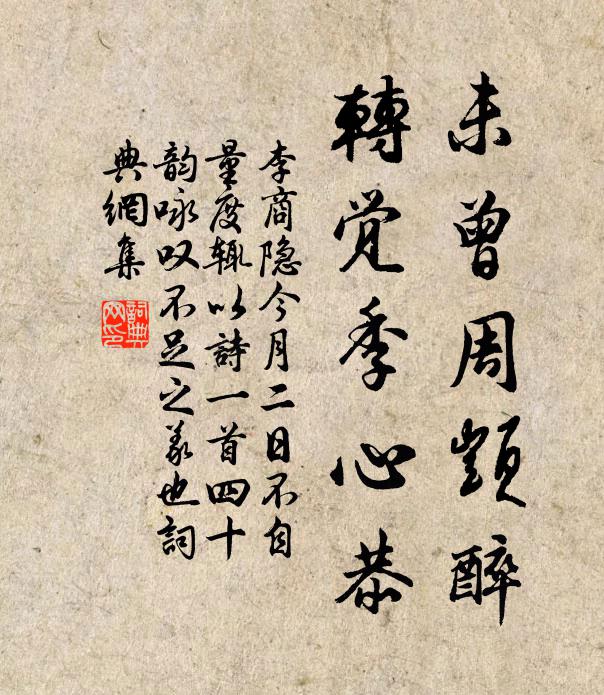 未曾周顗醉
轉觉季心恭
李商隐今月二日不自
量度輒以詩一首四十
韵咏叹不足之義也詞
典網集
詞典
网印